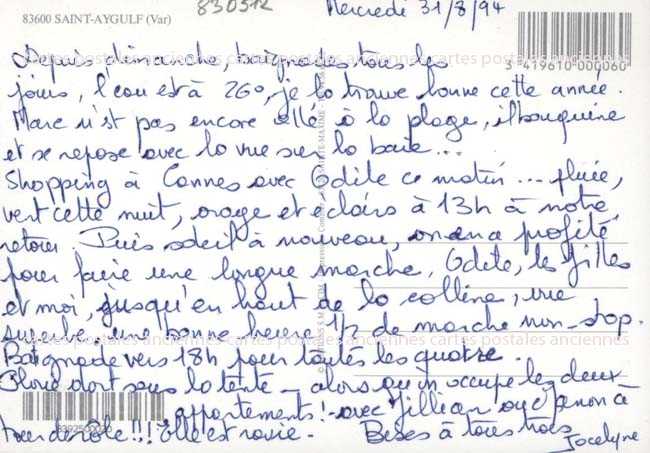 83600 SAINT-AYGULF (Var)
830512
Mercredi 31/8/94
3 419610 000060
Depuis dimanche, baignades tous les
jours, l'eau est à 26°, je la trouve bonne cette année.
Marc n'est pas encore allé à la plage, il bouquine
et se repose avec la vue sur la baie...
Shopping à Cannes avec Odile ce matin... pluie,
vent cette nuit, orage et éclairs à 13h à notre
retour. Puis soleil à nouveau, on en a profité
pour faire une longue marche, Odile, les filles
et moi, jusqu'en haut de la colline, vue
superbe, une bonne heure 1/2 de marche non-stop.
Baignade vers 18h pour toutes les quatre.
dort sous la tente - alors qu'on occupe les deux
appartements! - avec Jillian
tour de rôle!!! Elle est ravie. Bises à tous
Jocelyne
8392500020
cartes postales anciennes cartes postales anciennes cartes postales anciennes
cartes postales anciennes cartes postales anciennes cartes postales anciennes